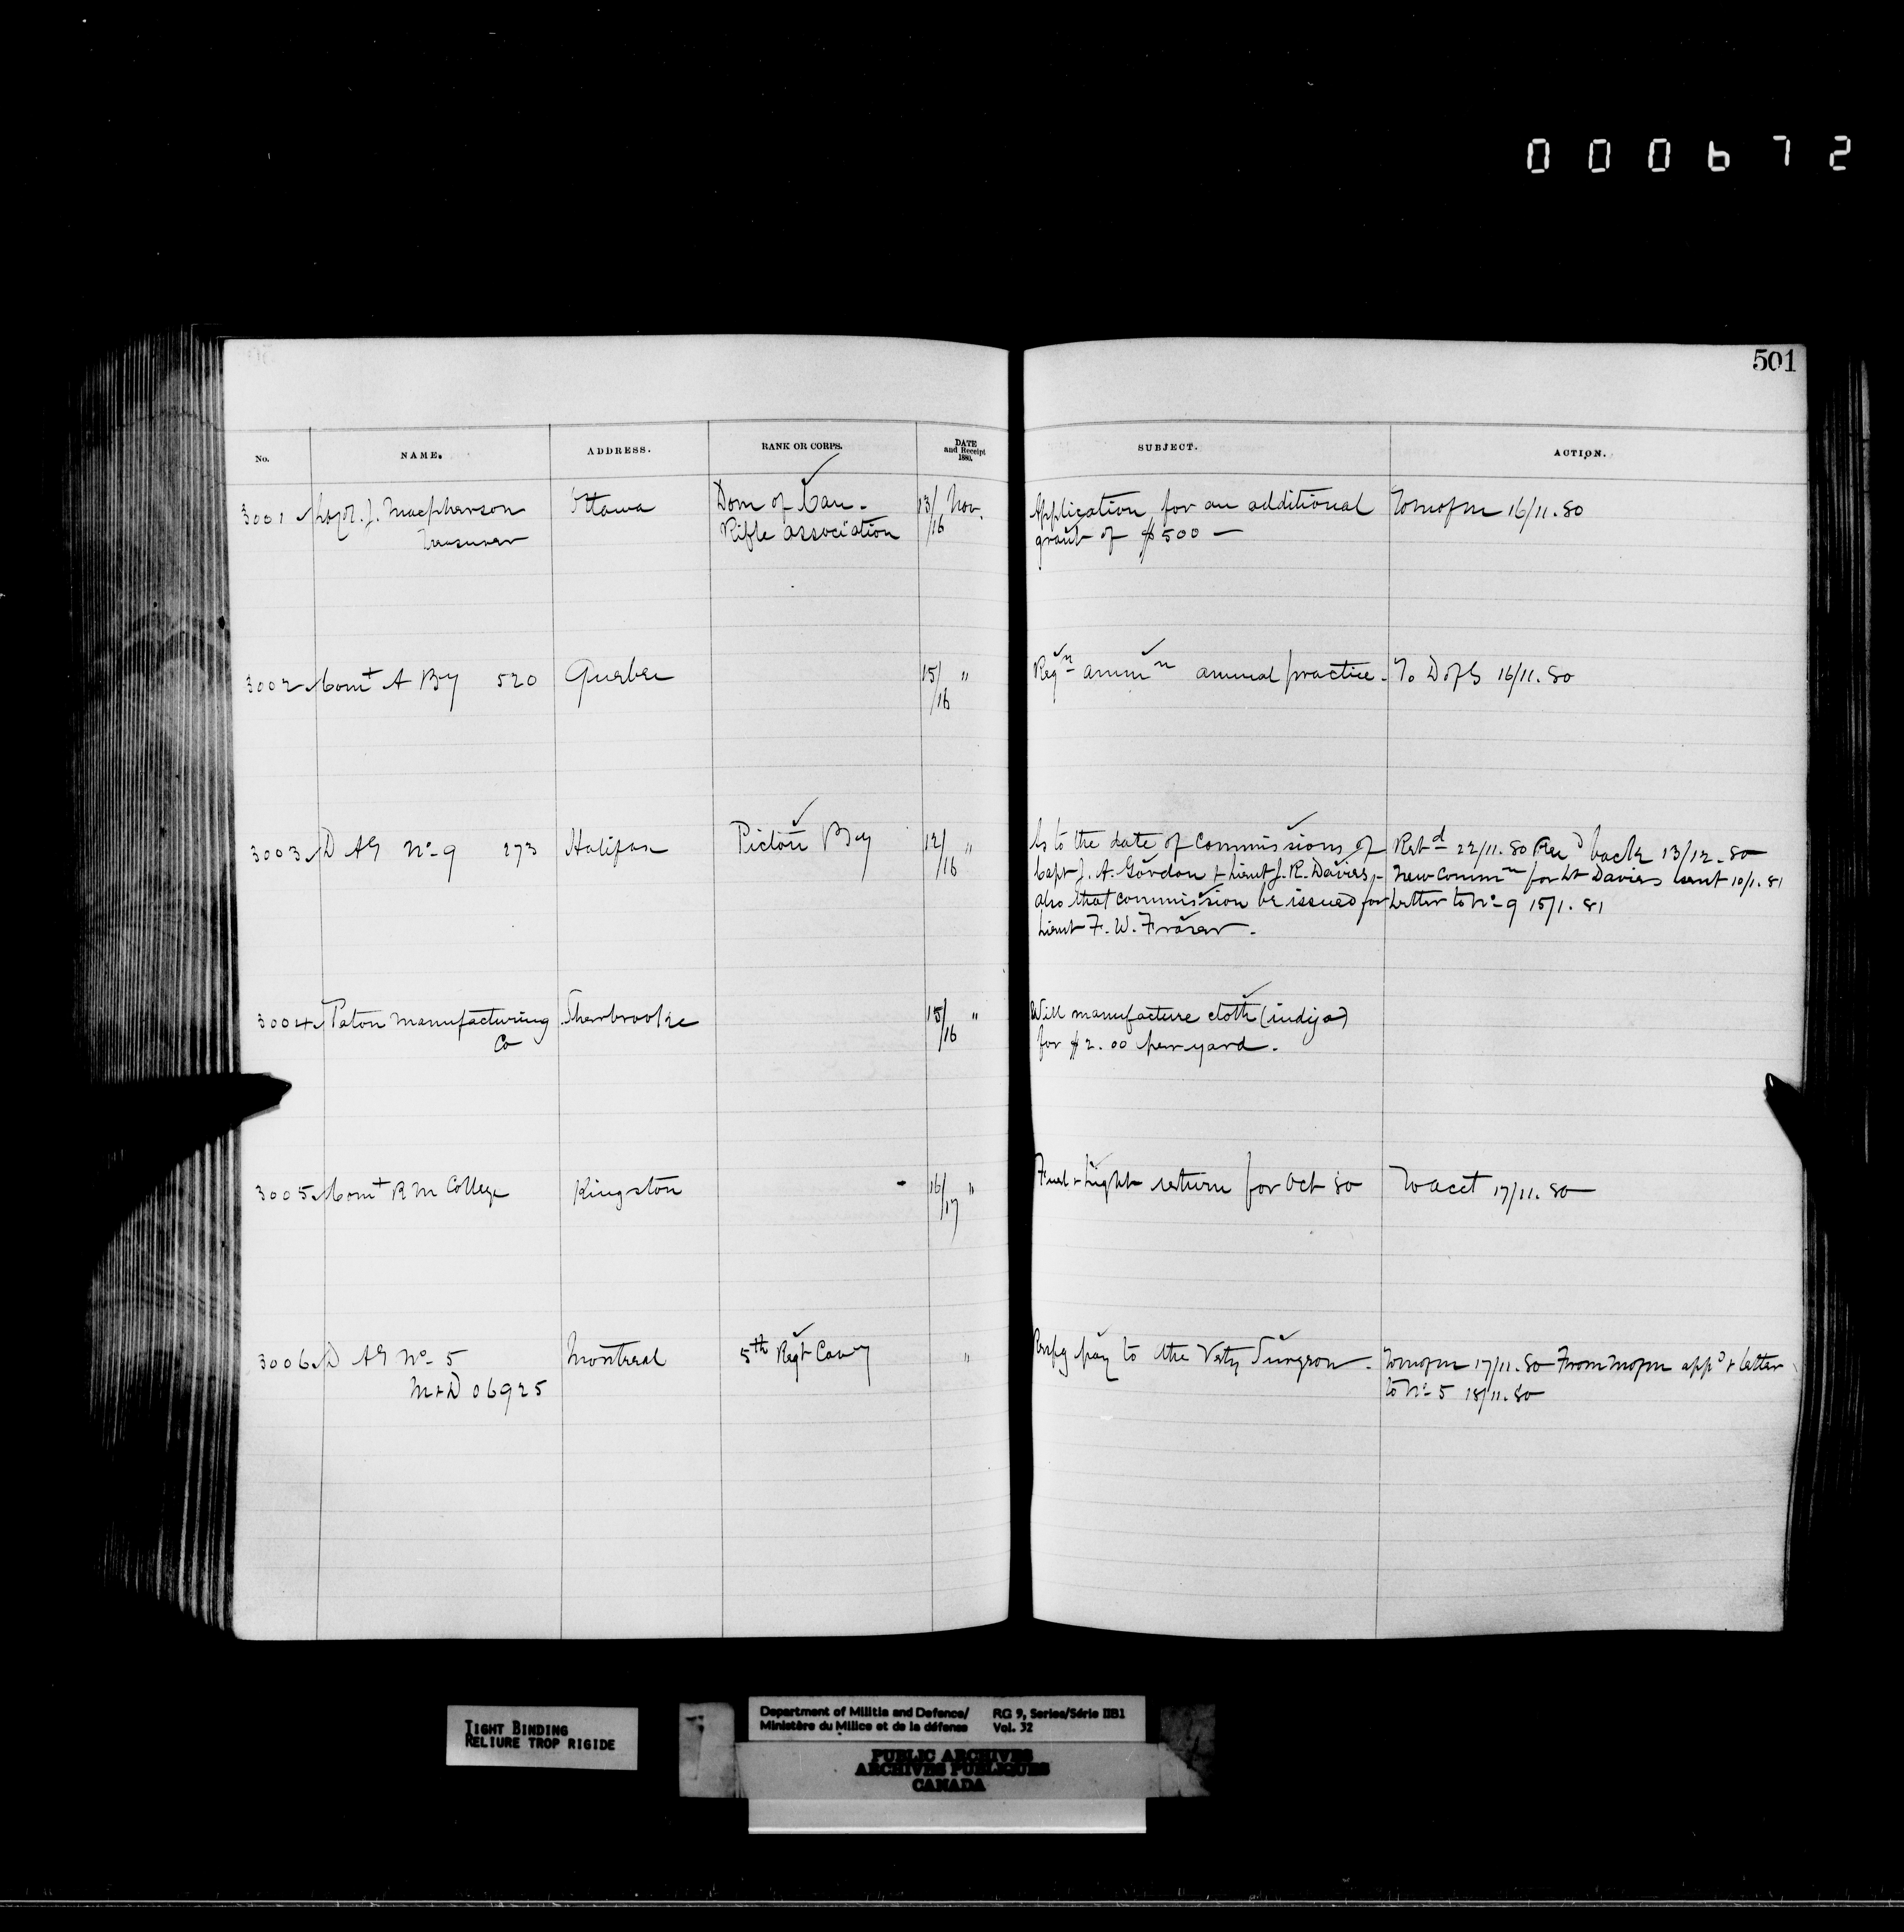 000672
501
No. NAME. ADDRESS. RANK OR CORPS. DATE and Receipt 1880. SUBJECT. ACTION.
3001 J. Macpherson Ottawa Dom of Can. 13/16 Nov. Application for an additional To mofm 16/11.80
Treasurer Rifle association grant of $500 —
3002 Comt A By 520 Quebec 15/16 " Reqn ammn annual practice. To D of S 16/11.80
3003 D AG No 9 273 Halifax Pictou By 12/16 " As to the date of commissions of Retd 22/11.80 Recd back 13/12.80
Capt J. A. Gordon & Lieut J. R. Davies, - New Commn for Lt Davies sent 10/1.81
also that commission be issued for Letter to No 9 15/1.81
Lieut F. W. Fraser.
3004 Paton Manufacturing Sherbrooke 15/16 " Will manufacture cloth (indigo)
Co for $2.00 per yard.
3005 Comt R M College Kingston 16/17 " Fuel & Light return for Oct 80 To acct 17/11.80
3006 D AG No 5 Montreal 5th Regt Cavy " Respg pay to the Vety Surgeon. To mofm 17/11.80 From mofm appd & letter
M & D 06925 to No 5 18/11.80
TIGHT BINDING
RELIURE TROP RIGIDE
Department of Militia and Defence/ RG 9, Series/Série IIB1
Ministère du Milice et de la défense Vol. 32
PUBLIC ARCHIVES
ARCHIVES PUBLIQUES
CANADA